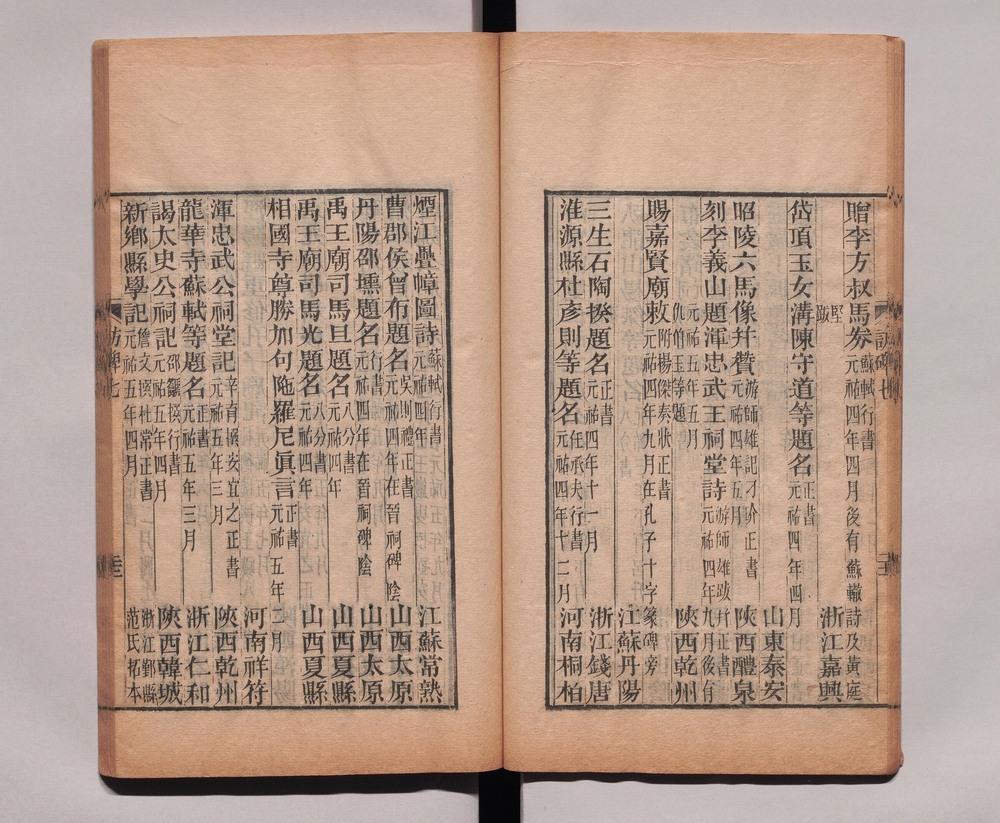 贈李方叔馬券蘇軾行書元祐四年四月後有蘇轍詩及黃庭堅跋 浙江嘉興
岱項玉女溝陳守道等題名正書元祐四年四月 山東泰安
昭陵六馬像并贊游師雄記刁玠正書元祐四年五月 陝西醴泉
刻李義山題渾忠武王祠堂詩游師雄跋并正書元祐四年九月後有仇伯玉等題元祐五年五月 陝西乾州
賜嘉賢廟敕附楊傑奏狀正書元祐四年九月在孔子十字篆碑旁 江蘇丹陽
三生石陶揆題名正書元祐四年十一月 浙江錢唐
淮源縣杜彥則等題名任承夫行書元祐四年十二月 河南桐柏
煙江疊嶂圖詩蘇軾行書元祐四年 江蘇常熟
曹郡侯曾布題名吳則禮正書元祐四年在晉祠碑陰 山西太原
丹陽邵壎題名行書元祐四年在晉祠碑陰 山西太原
禹王廟司馬旦題名八分書元祐四年 山西夏縣
禹王廟司馬光題名八分書元祐四年 山西夏縣
相國寺尊勝加句陁羅尼眞言正書元祐五年二月 河南祥符
渾忠武公祠堂記辛育撰安宜之正書元祐五年三月 陝西乾州
龍華寺蘇軾等題名正書元祐五年三月 浙江仁和
謁太史公祠記邵𥳑撰行書元祐五年四月 陝西韓城
新鄉縣學記詹文撰杜常正書元祐五年四月 浙江鄞縣范氏拓本
訪碑七